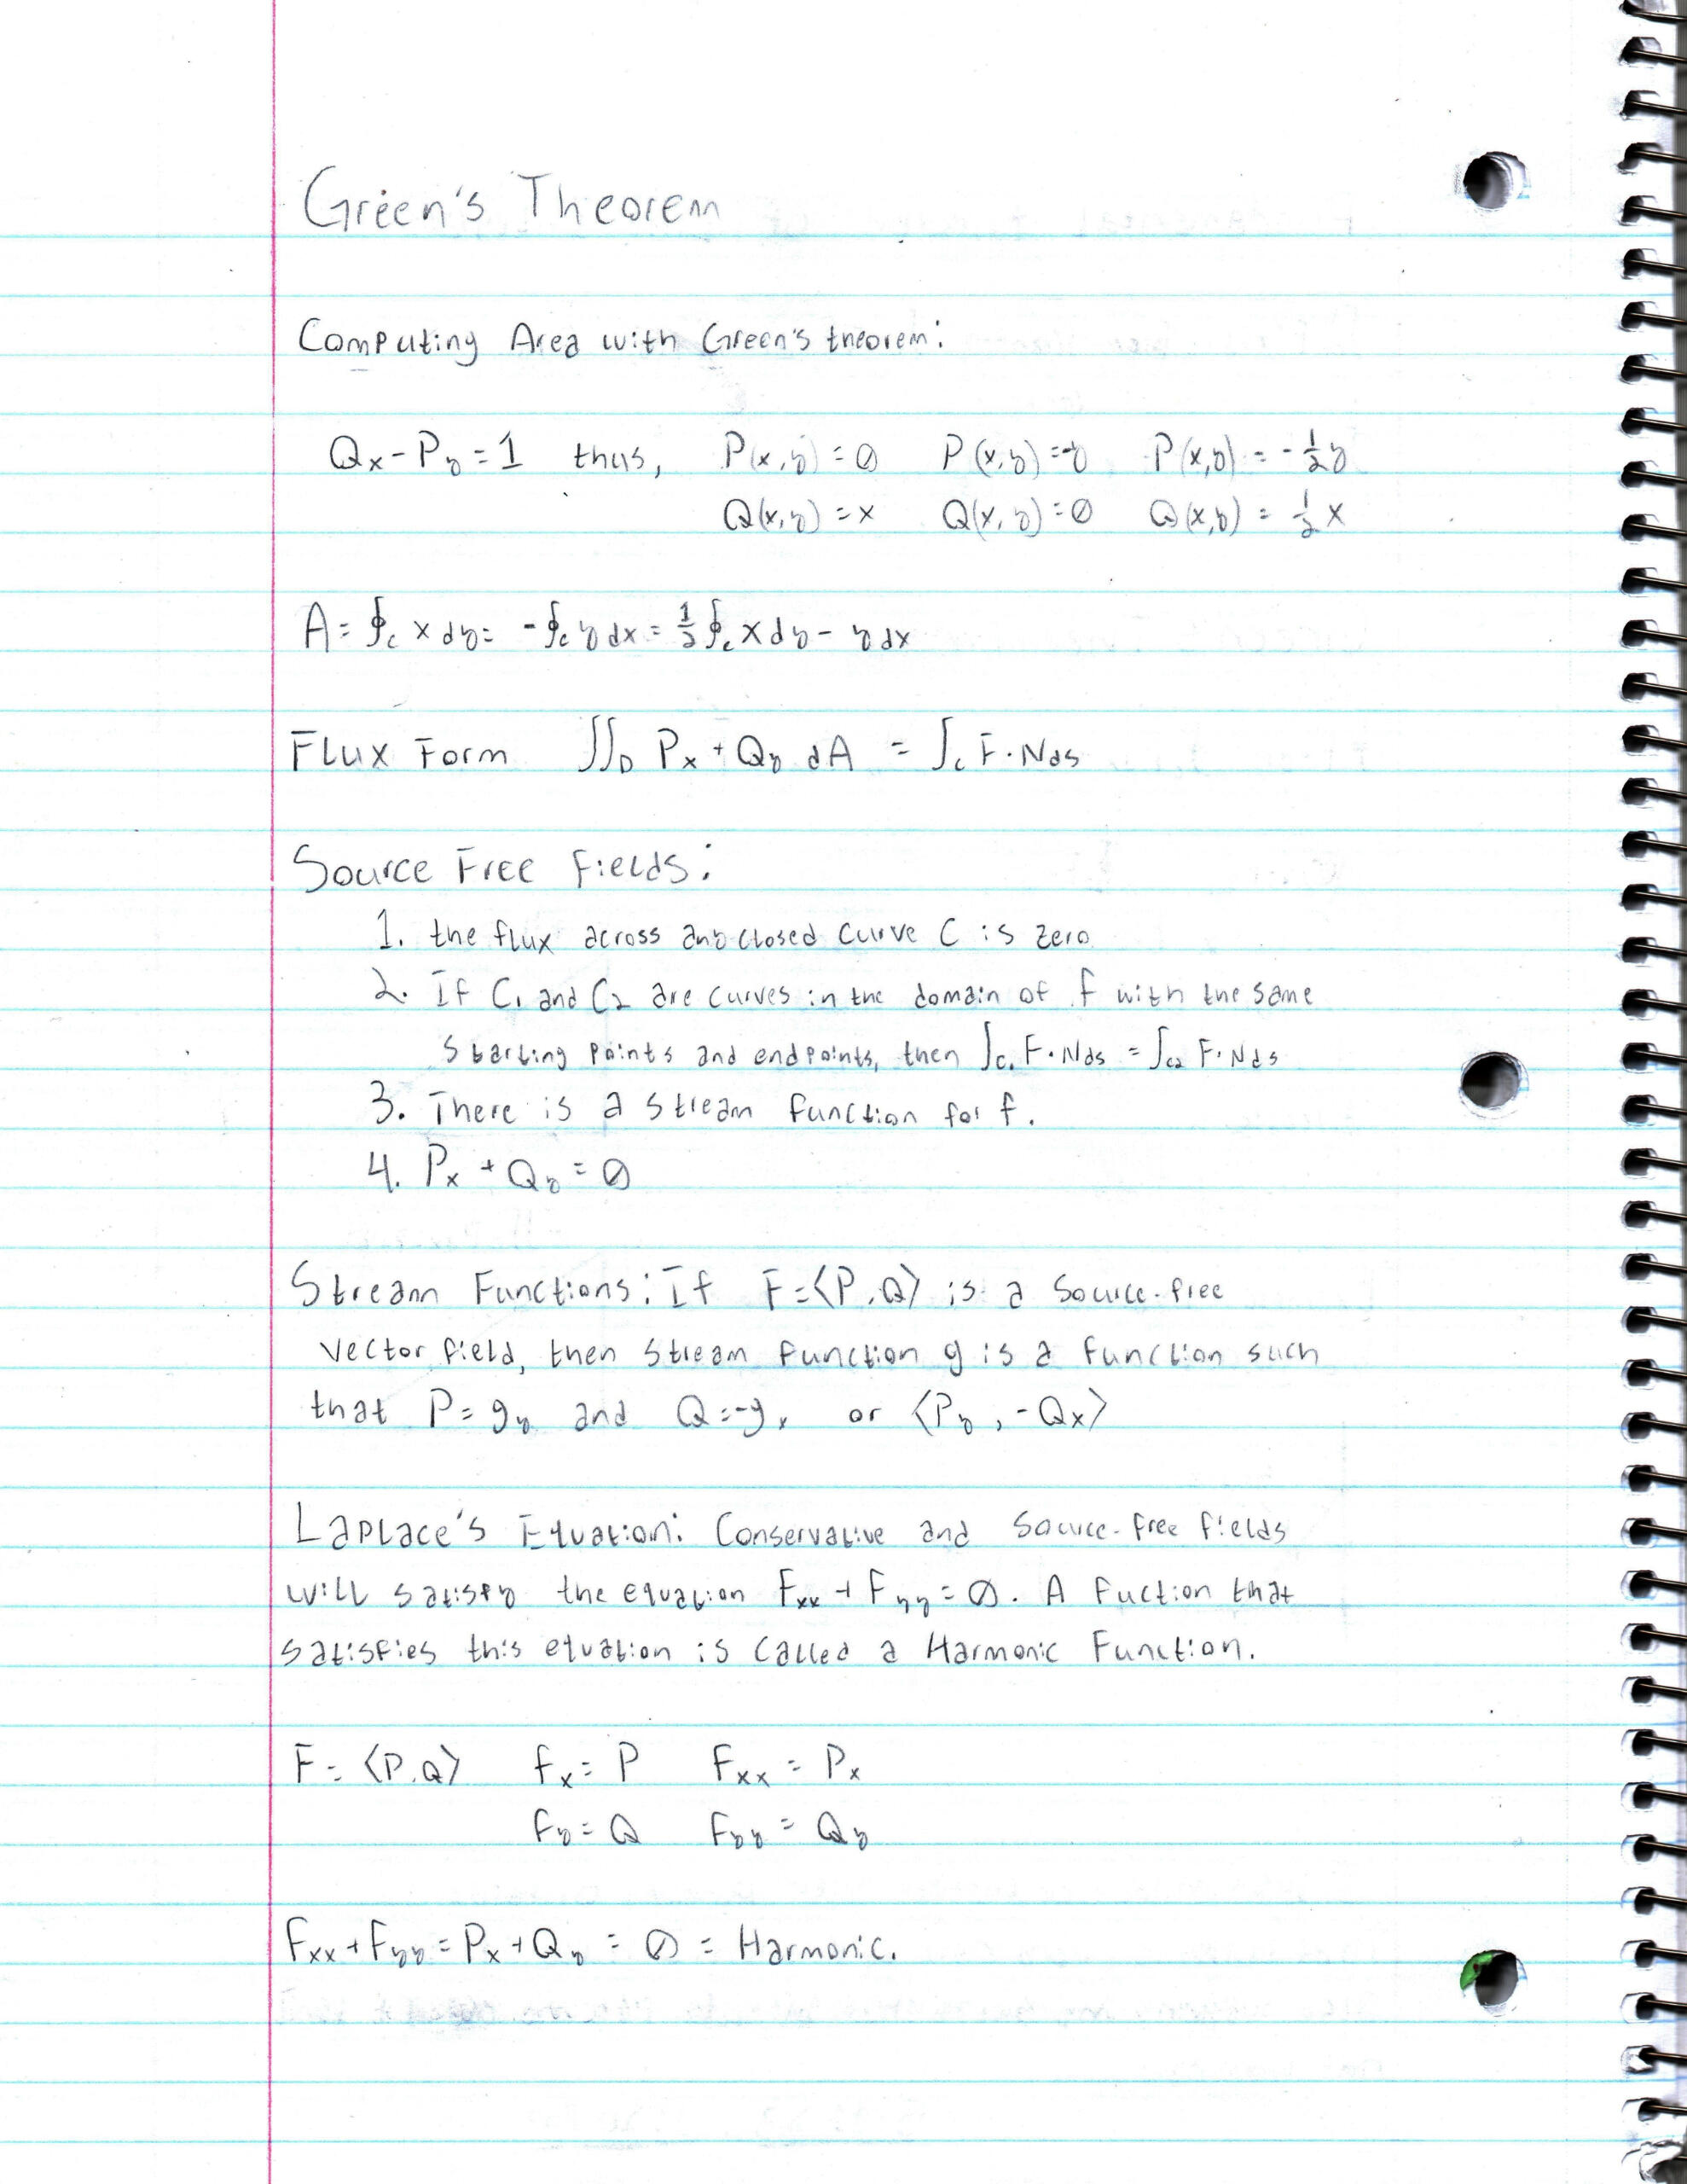 Green's Theorem
Computing Area with Green's theorem:
Qx - Py = 1 thus, P(x,y) = 0 P(x,y) = -y P(x,y) = -½y
Q(x,y) = x Q(x,y) = 0 Q(x,y) = ½x
A = ∮c x dy = -∮c y dx = ½∮c x dy - y dx
Flux Form ∬D Px + Qy dA = ∫c F·Nds
Source Free Fields:
1. the flux across any closed curve C is zero
2. If C1 and C2 are curves in the domain of f with the same
starting points and endpoints, then ∫C1 F·Nds = ∫C2 F·Nds
3. There is a stream function for f.
4. Px + Qy = 0
Stream Functions: If F = ⟨P,Q⟩ is a source-free
vector field, then stream function g is a function such
that P = gy and Q = -gx or ⟨Py, -Qx⟩
Laplace's Equation: Conservative and source-free fields
will satisfy the equation Fxx + Fyy = 0. A fuction that
satisfies this equation is called a Harmonic Function.
F = ⟨P,Q⟩ fx = P Fxx = Px
fy = Q Fyy = Qy
Fxx + Fyy = Px + Qy = 0 = Harmonic.